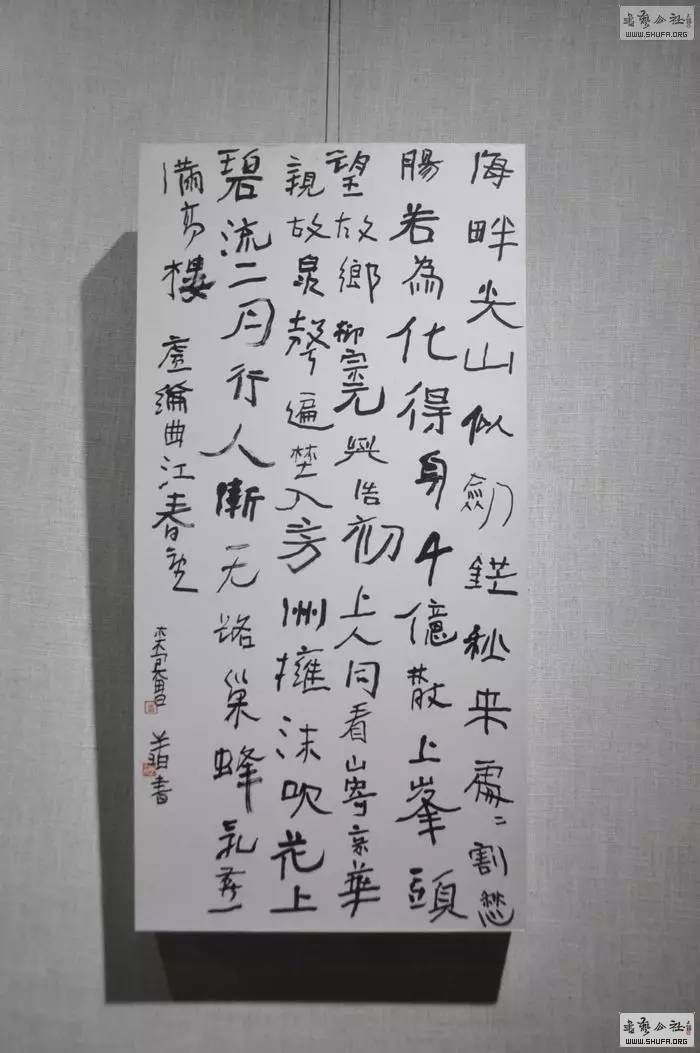 海畔尖山似劍鋩秋来處〻割愁
腸若為化得身千億散上峯頭
望故鄉 柳宗元與浩初上人同看山寄京華
親故泉聲遍埜入芳洲擁沫吹花上
碧流二月行人漸无路巢蜂乳燕
滿高樓 盧綸曲江春望 書
書藝公社
WWW.SHUFA.ORG
書藝公社
WWW.SHUFA.ORG